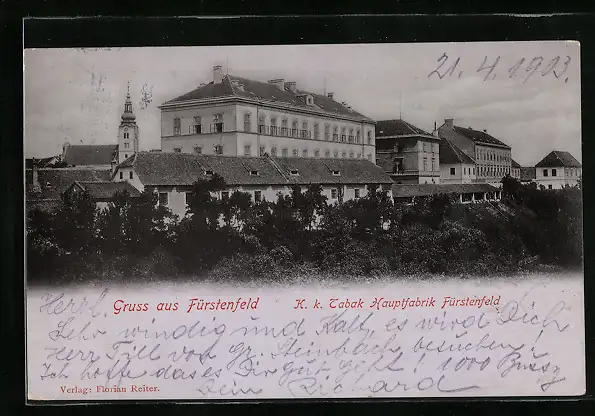 21. 4. 1903.
Gruss aus Fürstenfeld
K. k. Tabak Hauptfabrik Fürstenfeld
Herrl.
Sehr windig und kalt, es wird Dich
Herr Till von Gr. Steinbach besuchen!
Ich hoffe das es Dir gut geht! 1000 Bussy
Dein Richard
Verlag: Florian Reiter.